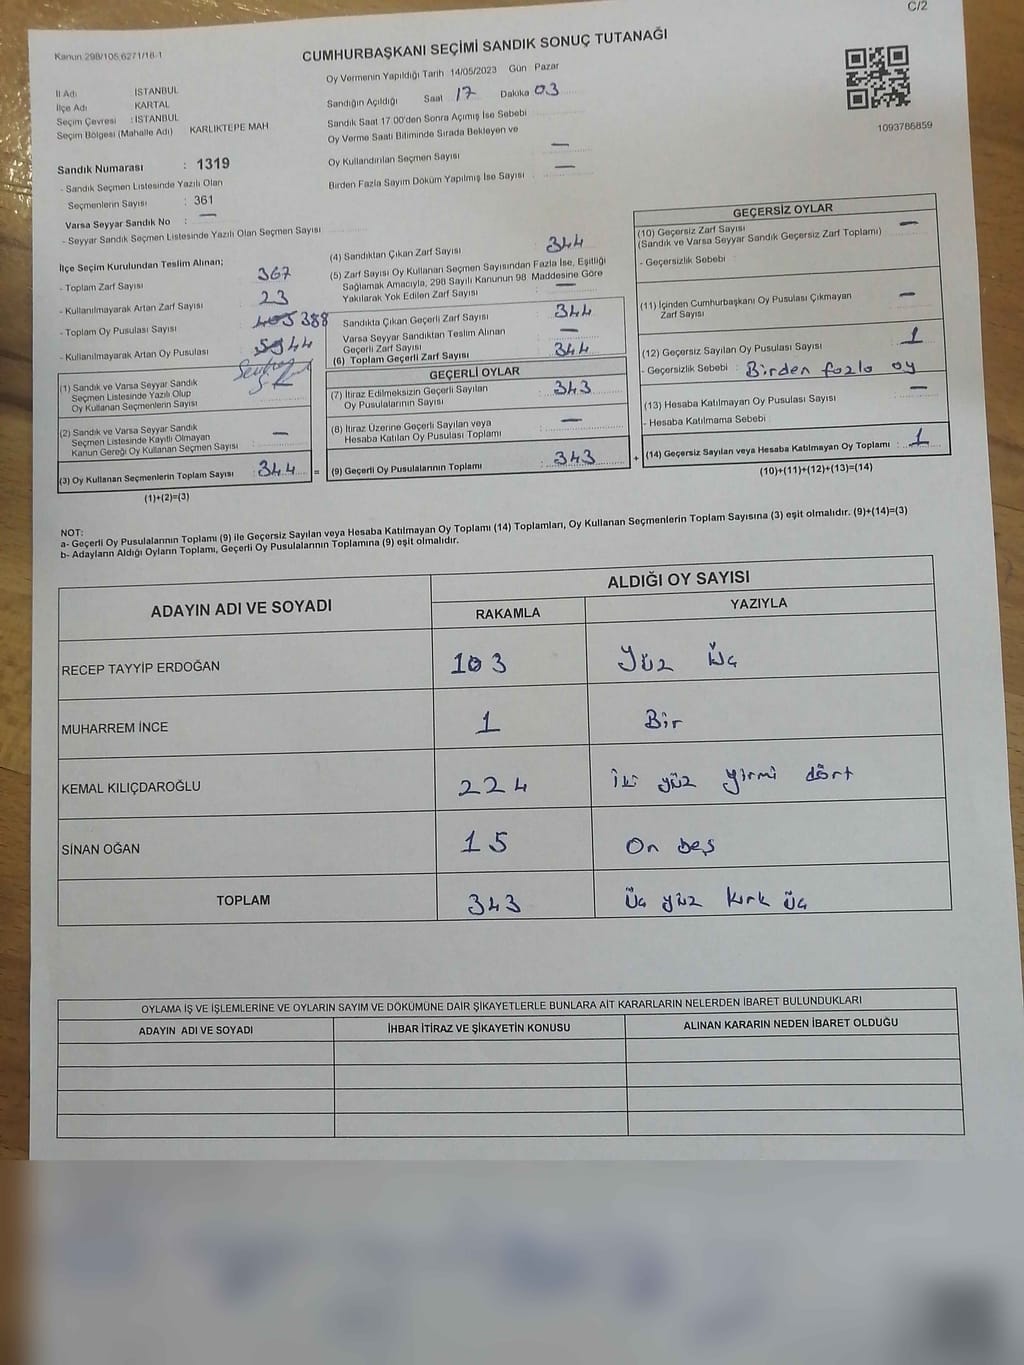 C/2
Kanun 298/105,6271/16-1
CUMHURBAŞKANI SEÇİMİ SANDIK SONUÇ TUTANAĞI
İl Adı : İSTANBUL
İlçe Adı : KARTAL
Seçim Çevresi : İSTANBUL
Seçim Bölgesi (Mahalle Adı) KARLIKTEPE MAH
Oy Vermenin Yapıldığı Tarih 14/05/2023 Gün Pazar
Sandığın Açıldığı Saat 17 Dakika 03
Sandık Saat 17.00'den Sonra Açımış İse Sebebi
Oy Verme Saati Bitiminde Sırada Bekleyen ve
Oy Kullandırılan Seçmen Sayısı : —
Birden Fazla Sayım Döküm Yapılmış İse Sayısı : —
1093786859
Sandık Numarası : 1319
- Sandık Seçmen Listesinde Yazılı Olan
Seçmenlerin Sayısı : 361
Varsa Seyyar Sandık No : —
- Seyyar Sandık Seçmen Listesinde Yazılı Olan Seçmen Sayısı
İlçe Seçim Kurulundan Teslim Alınan;
- Toplam Zarf Sayısı 367
- Kullanılmayarak Artan Zarf Sayısı 23
- Toplam Oy Pusulası Sayısı 405 388
- Kullanılmayarak Artan Oy Pusulası 44
(1) Sandık ve Varsa Seyyar Sandık
Seçmen Listesinde Yazılı Olup
Oy Kullanan Seçmenlerin Sayısı
(2) Sandık ve Varsa Seyyar Sandık
Seçmen Listesinde Kayıtlı Olmayan
Kanun Gereği Oy Kullanan Seçmen Sayısı : —
(3) Oy Kullanan Seçmenlerin Toplam Sayısı : 344 =
(1)+(2)=(3)
(4) Sandıktan Çıkan Zarf Sayısı 344
(5) Zarf Sayısı Oy Kullanan Seçmen Sayısından Fazla İse, Eşitliği
Sağlamak Amacıyla, 298 Sayılı Kanunun 98. Maddesine Göre
Yakılarak Yok Edilen Zarf Sayısı : —
Sandıkta Çıkan Geçerli Zarf Sayısı : 344
Varsa Seyyar Sandıktan Teslim Alınan
Geçerli Zarf Sayısı : —
(6) Toplam Geçerli Zarf Sayısı : 344
GEÇERLİ OYLAR
(7) İtiraz Edilmeksizin Geçerli Sayılan
Oy Pusulalarının Sayısı : 343
(8) İtiraz Üzerine Geçerli Sayılan veya
Hesaba Katılan Oy Pusulası Toplamı : —
(9) Geçerli Oy Pusulalarının Toplamı : 343 +
GEÇERSİZ OYLAR
(10) Geçersiz Zarf Sayısı : —
(Sandık ve Varsa Seyyar Sandık Geçersiz Zarf Toplamı)
- Geçersizlik Sebebi :
(11) İçinden Cumhurbaşkanı Oy Pusulası Çıkmayan
Zarf Sayısı : —
(12) Geçersiz Sayılan Oy Pusulası Sayısı : 1
- Geçersizlik Sebebi : Birden fazla oy
(13) Hesaba Katılmayan Oy Pusulası Sayısı : —
- Hesaba Katılmama Sebebi :
(14) Geçersiz Sayılan veya Hesaba Katılmayan Oy Toplamı : 1
(10)+(11)+(12)+(13)=(14)
NOT:
a- Geçerli Oy Pusulalarının Toplamı (9) ile Geçersiz Sayılan veya Hesaba Katılmayan Oy Toplamı (14) Toplamları, Oy Kullanan Seçmenlerin Toplam Sayısına (3) eşit olmalıdır. (9)+(14)=(3)
b- Adayların Aldığı Oyların Toplamı, Geçerli Oy Pusulalarının Toplamına (9) eşit olmalıdır.
ADAYIN ADI VE SOYADI ALDIĞI OY SAYISI
RAKAMLA YAZIYLA
RECEP TAYYİP ERDOĞAN 103 Yüz üç
MUHARREM İNCE 1 Bir
KEMAL KILIÇDAROĞLU 224 İki yüz yirmi dört
SİNAN OĞAN 15 On beş
TOPLAM 343 Üç yüz kırk üç
OYLAMA İŞ VE İŞLEMLERİNE VE OYLARIN SAYIM VE DÖKÜMÜNE DAİR ŞİKAYETLERLE BUNLARA AİT KARARLARIN NELERDEN İBARET BULUNDUKLARI
ADAYIN ADI VE SOYADI İHBAR İTİRAZ VE ŞİKAYETİN KONUSU ALINAN KARARIN NEDEN İBARET OLDUĞU